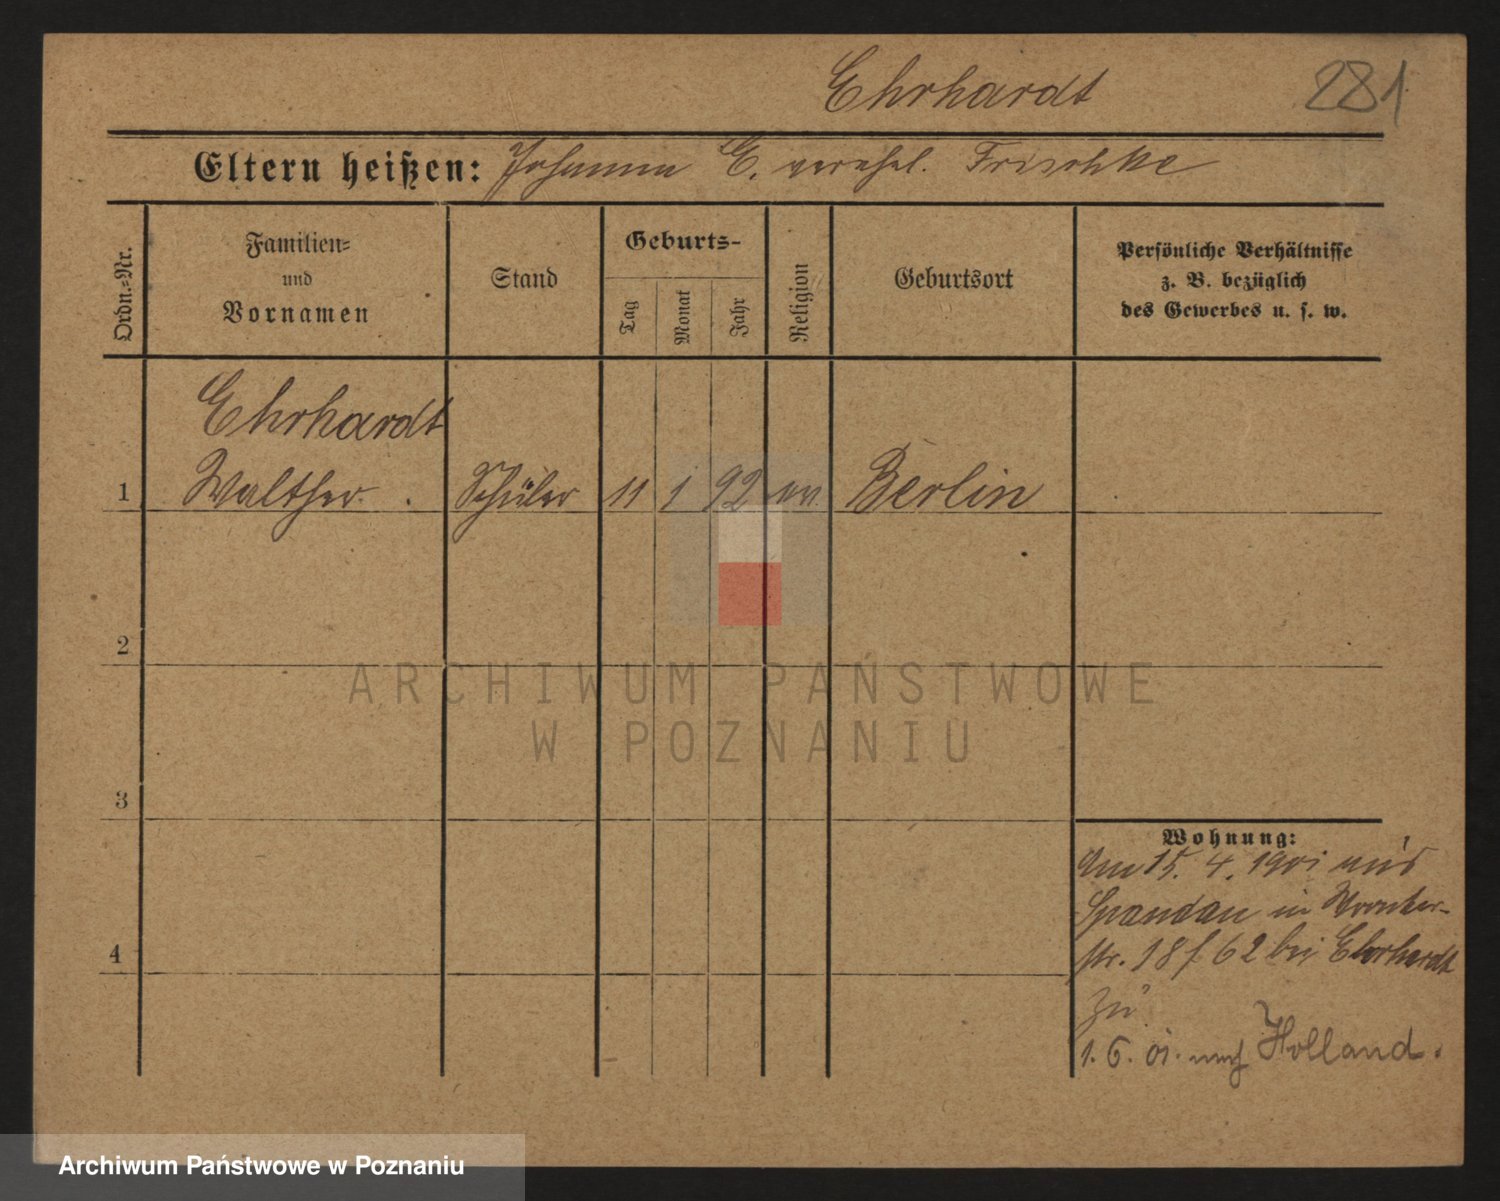 Ehrhardt
281
Eltern heißen: Johanna E. verehel. Frischke
Ordn.-Nr.
Familien-
und
Vornamen
Stand
Geburts-
Tag
Monat
Jahr
Religion
Geburtsort
Persönliche Verhältnisse
z. B. bezüglich
des Gewerbes u. s. w.
Ehrhardt
1 Walther. Schüler 11 1 92 ev. Berlin
2
ARCHIWUM PAŃSTWOWE
W POZNANIU
3
Wohnung:
Am 15. 4. 1901 aus
Spandau in Wronker-
4
str. 18 62 bei Ehrhardt
zu
1. 6. 01. nach Holland.
Archiwum Państwowe w Poznaniu